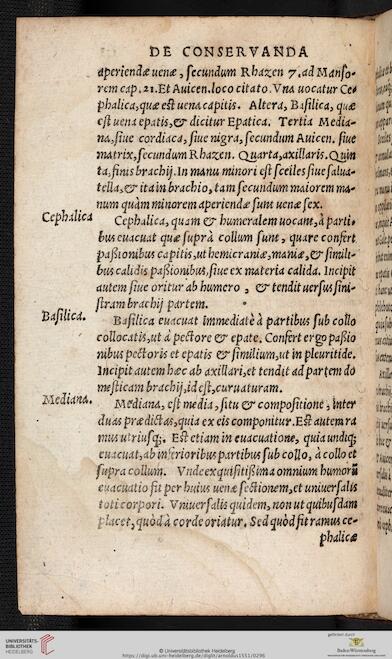 DE CONSERVANDA
aperiendæ uenæ, secundum Rhazen 7. ad Manso-
rem cap. 21. Et Auicen. loco citato. Vna uocatur Ce-
phalica, quæ est uena capitis. Altera, Basilica, quæ
est uena epatis, & dicitur Epatica. Tertia Media-
na, siue cordiaca, siue nigra, secundum Auicen. siue
matrix, secundum Rhazen. Quarta, axillaris. Quin
ta, finis brachij. In manu minori est sceiles siue salua-
tella, & ita in brachio, tam secundum maiorem ma-
num quàm minorem aperiendæ sunt uenæ sex.
Cephalica
Cephalica, quam & humeralem uocant, à parti-
bus euacuat quæ suprà collum sunt, quare confert
passionibus capitis, ut hemicraniæ, maniæ, & simili-
bus calidis passionibus, siue ex materia calida. Incipit
autem siue oritur ab humero, & tendit uersus sini-
stram brachij partem.
Basilica.
Basilica euacuat immediatè à partibus sub collo
collocatis, ut à pectore & epate. Confert ergo passio
nibus pectoris et epatis & similium, ut in pleuritide.
Incipit autem hæc ab axillari, et tendit ad partem do
mesticam brachij, id est, curuaturam.
Mediana.
Mediana, est media, situ & compositione, inter
duas prædictas, quia ex eis componitur. Est autem ra
mus utriusq;. Est etiam in euacuatione, quia undiq;
euacuat, ab inferioribus partibus sub collo, à collo et
supra collum. Vnde exquisitißima omnium humorū
euacuatio fit per huius uenæ sectionem, et uniuersalis
toti corpori. Vniuersalis quidem, non ut quibusdam
placet, quòd à corde oriatur. Sed quòd fit ramus ce-
phalicæ
UNIVERSITÄTS-
BIBLIOTHEK
HEIDELBERG
© Universitätsbibliothek Heidelberg
https://digi.ub.uni-heidelberg.de/diglit/arnoldus1551/0296
gefördert durch
Baden-Württemberg